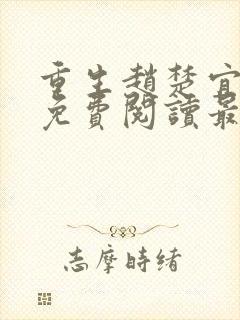 重生趙楚宜
免費閱讀最
志摩時緒